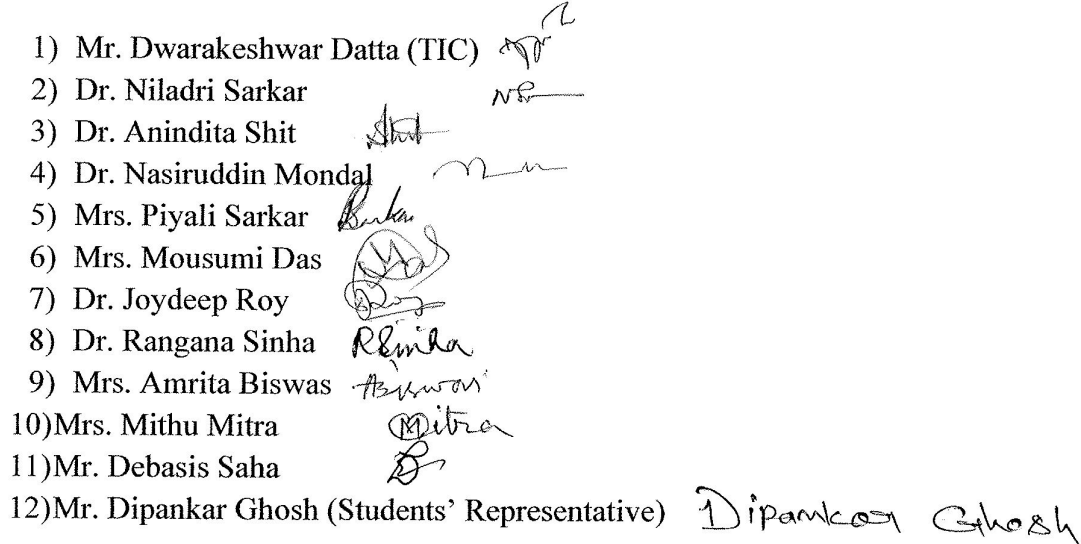 1) Mr. Dwarakeshwar Datta (TIC)
2) Dr. Niladri Sarkar
3) Dr. Anindita Shit Shit
4) Dr. Nasiruddin Mondal
5) Mrs. Piyali Sarkar Sarkar
6) Mrs. Mousumi Das
7) Dr. Joydeep Roy Roy
8) Dr. Rangana Sinha RSinha
9) Mrs. Amrita Biswas ABiswas
10)Mrs. Mithu Mitra MMitra
11)Mr. Debasis Saha
12)Mr. Dipankar Ghosh (Students’ Representative) Dipankar Ghosh